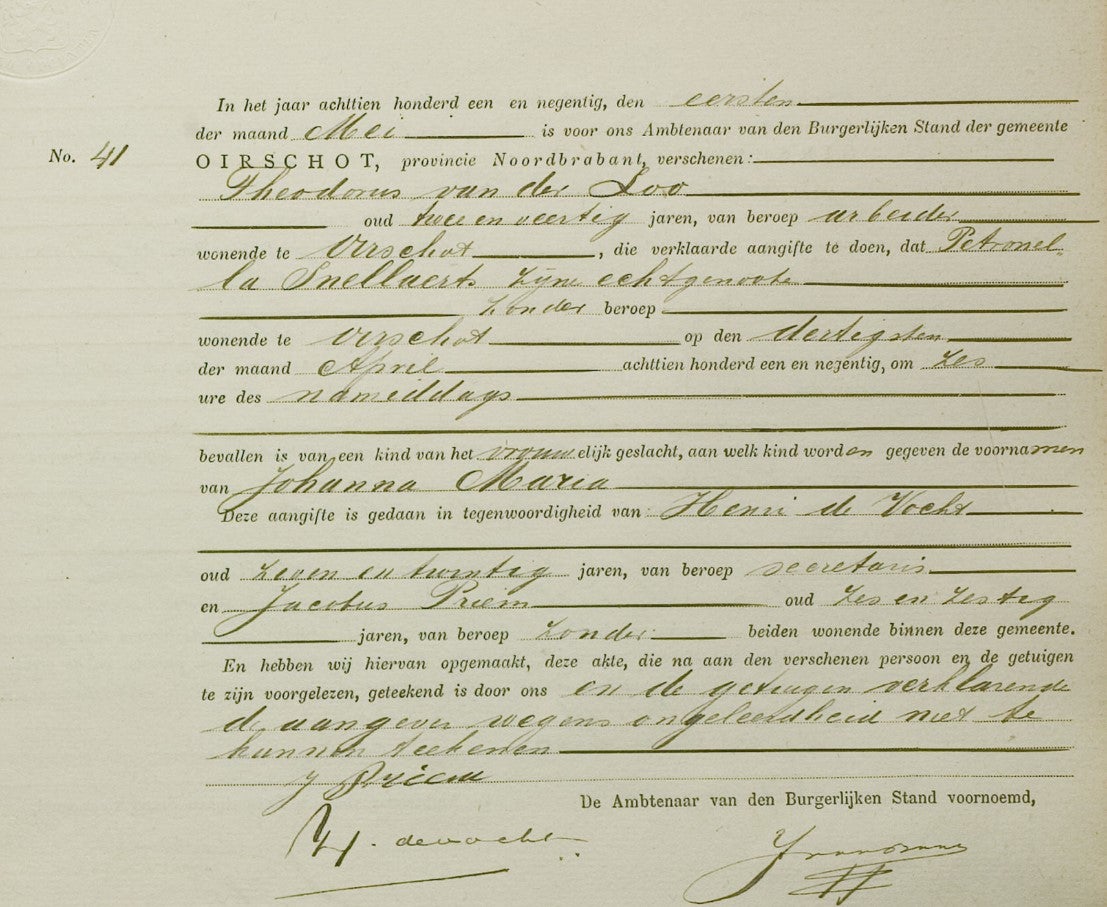 In het jaar achttien honderd een en negentig, den eersten
der maand Mei is voor ons Ambtenaar van den Burgerlijken Stand der gemeente
No. 41 OIRSCHOT, provincie Noordbrabant, verschenen:
Theodorus van der Loo
oud twee en veertig jaren, van beroep arbeider
wonende te Oirschot, die verklaarde aangifte te doen, dat Petronel
la Snellaerts zijne echtgenoote
zonder beroep
wonende te Oirschot op den dertigsten
der maand April achttien honderd een en negentig, om zes
ure des nameiddags
bevallen is van een kind van het vrouwelijk geslacht, aan welk kind worden gegeven de voornamen
van Johanna Maria
Deze aangifte is gedaan in tegenwoordigheid van Henri de Vocht
oud zeven en twintig jaren, van beroep secretaris
en Jacobus Priem oud zes en zestig
jaren, van beroep zonder beiden wonende binnen deze gemeente.
En hebben wij hiervan opgemaakt, deze akte, die na aan den verschenen persoon en de getuigen
te zijn voorgelezen, geteekend is door ons en de getuigen verklarende
de aangever wegens ongeleerdheid niet te
kunnen teekenen
J Priem
De Ambtenaar van den Burgerlijken Stand voornoemd,
H. de vocht